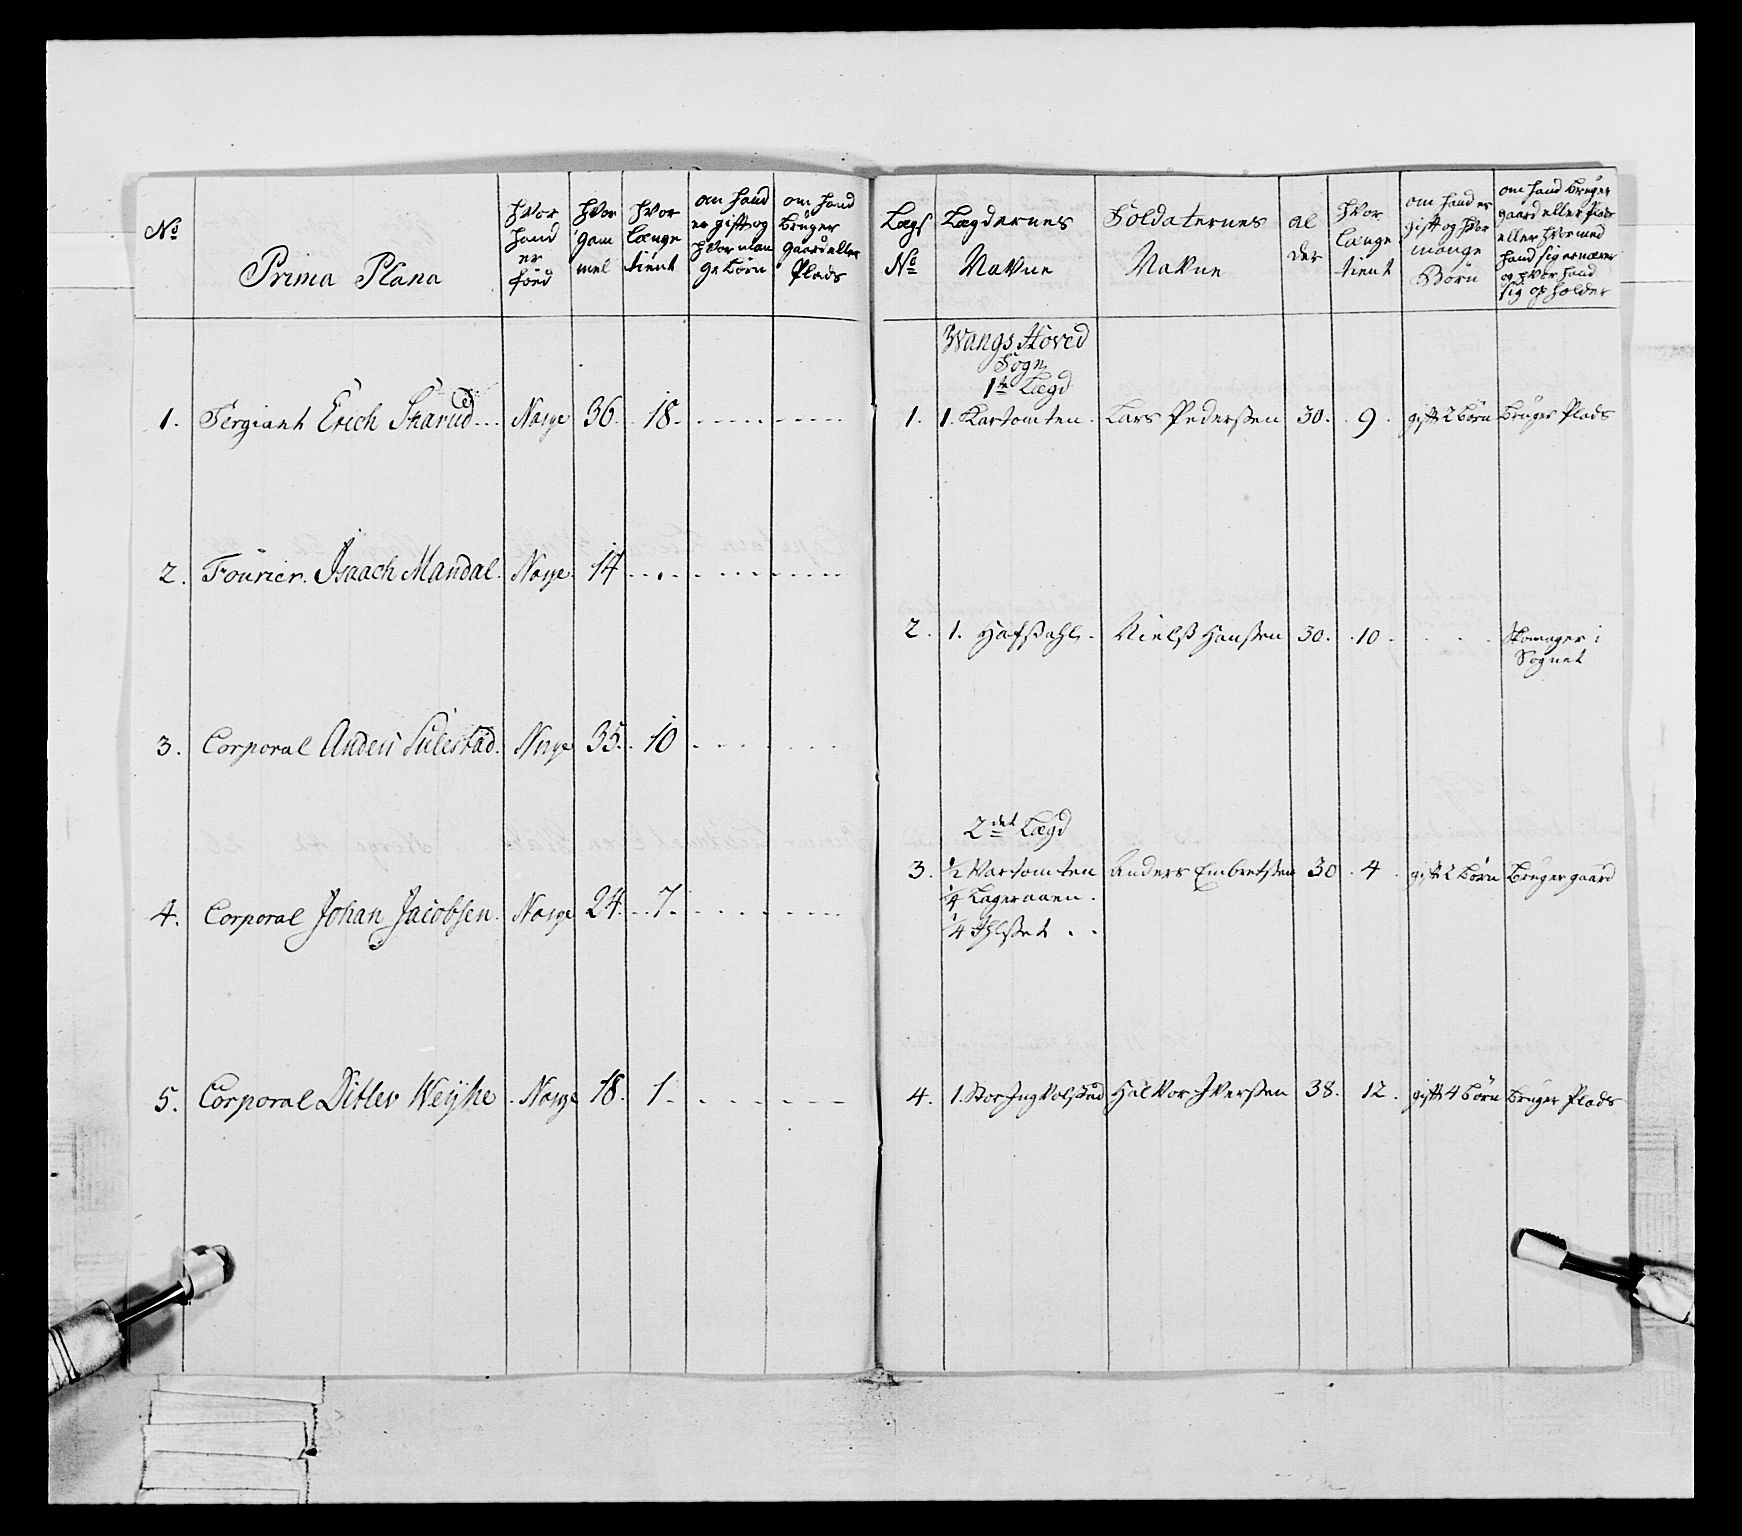 No
Prima Plana
hvor
hand
er
föed
hvor
gam
mel
hvor
længe
tient
om hand
er gift og
hvor man
ge börn
om hand
brüger
gaard eller
Plads
1. Sergiant Erich Skarud Norge 36. 18.
2. Fourier. Isaach Mandal. Norge 14
3. Corporal Anders Sülestad. Norge 35. 10
4. Corporal Johan Jacobsen. Norge 24. 7.
5. Corporal Ditlev Weyhe Norge 18. 1.
Lægs
No
Lægdernes
Navne
Soldaternes
Navne
al
der
hvor
længe
tient
om hand er
gift og hvor
mange
Börn
om hand brüger
gaard eller Plads
eller hvormed
hand sig ernærer
og hvor hand
sig opholder
Wangs Hoved
Sogn
1te Lægd
1. 1. Kartomten. Lars Pedersen 30. 9. gift 2 börn brüger Plads
2. 1. Hafstahl. Nielss Hansen 30. 10. Skomager i
Sognet
2det Lægd
3. 1/2 Kartomten Anders Embretsen 30 4 gift 2 börn brüger gaard
1/4
1/4
4. 1. Stor Ingvolstad Halvor Iversen 38. 12. gift 4 börn brüger Plads